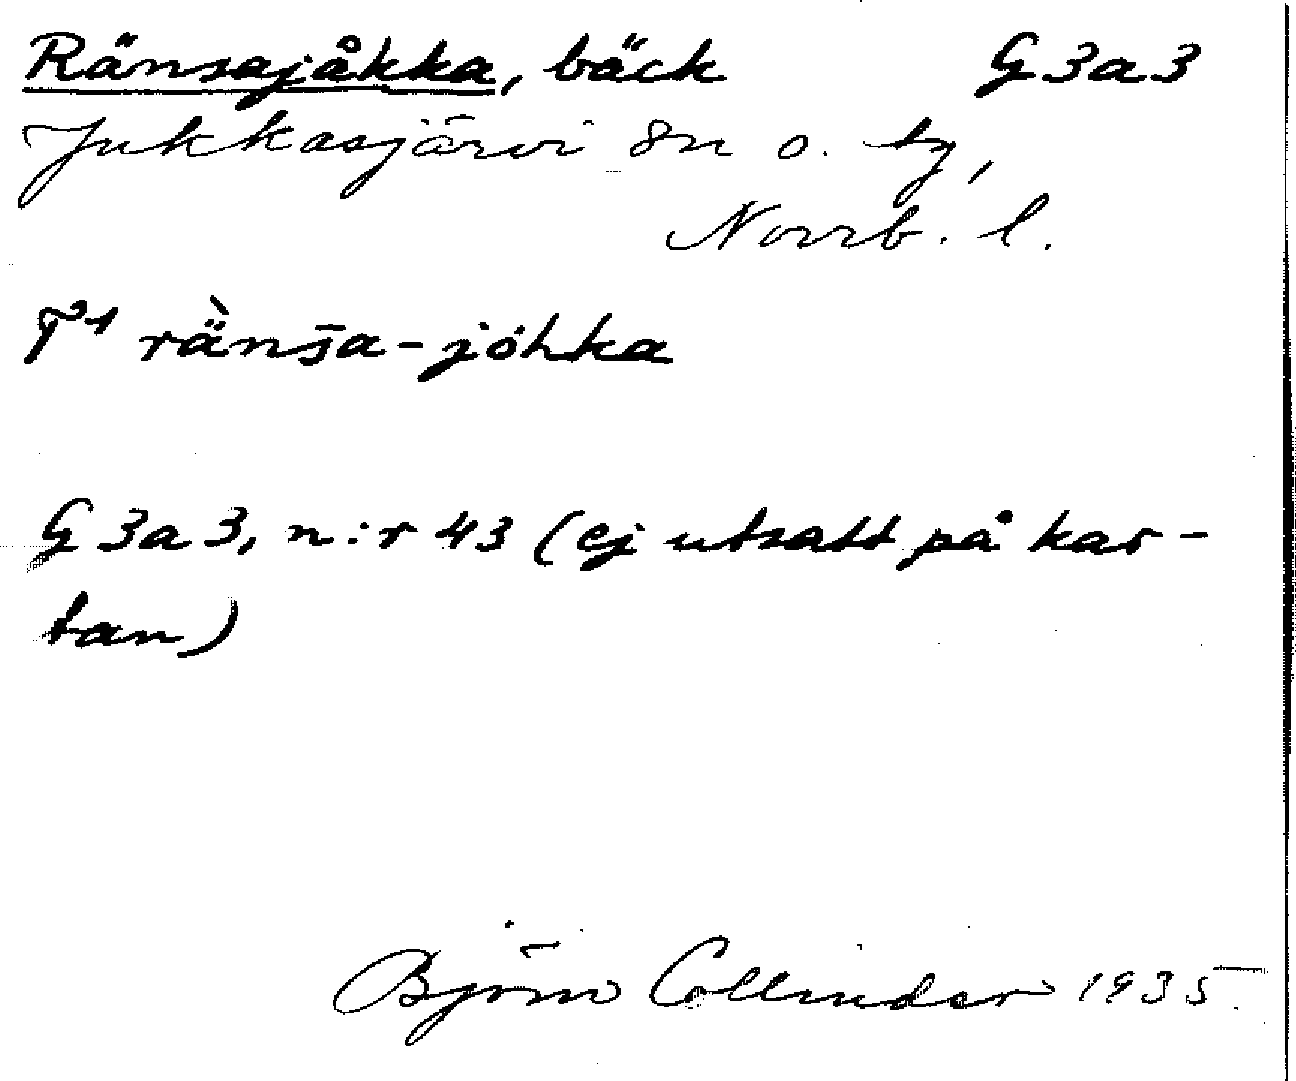 Ränsajåkka, bäck G3a3
Jukkasjärvi sn o. tg,
Norrb. l.
T¹ rä̀ns̄a-jóhka
G3a3, n:r 43 (ej utsatt på kar-
tan)
Björn Collinder 1935.